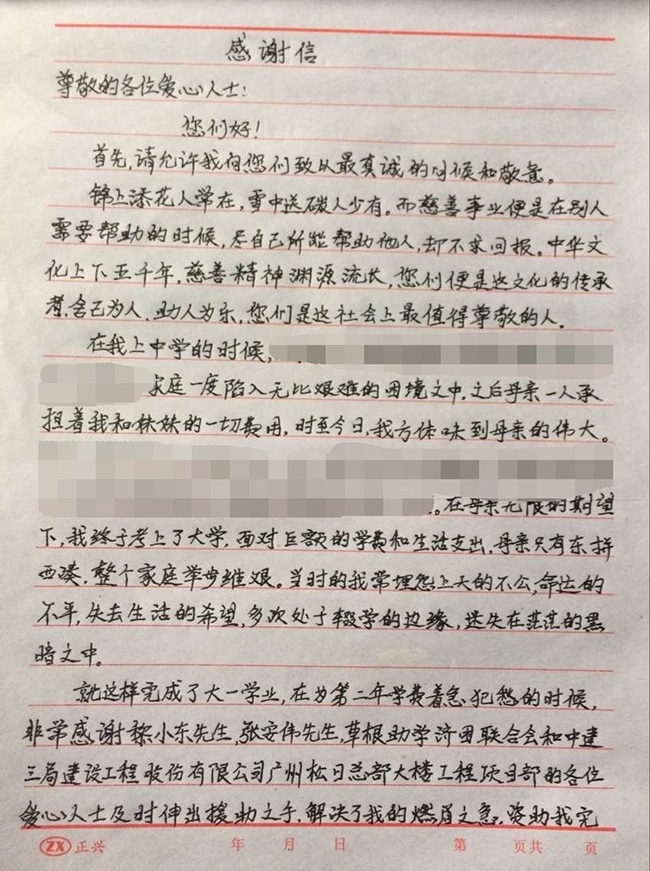 感谢信
尊敬的各位爱心人士：
您们好！
首先，请允许我向您们致以最真诚的问候和敬意。
锦上添花人常在，雪中送碳人少有。而慈善事业便是在别人
需要帮助的时候，尽自己所能帮助他人，却不求回报。中华文
化上下五千年，慈善精神渊源流长，您们便是这文化的传承
者，舍己为人、助人为乐，您们是这社会上最值得尊敬的人。
在我上中学的时候，
家庭一度陷入无比艰难的困境之中，之后母亲一人承
担着我和妹妹的一切费用，时至今日，我方体味到母亲的伟大。
。在母亲无限的期望
下，我终于考上了大学，面对巨额的学费和生活支出，母亲只有东拼
西凑，整个家庭举步维艰。当时的我常埋怨上天的不公，命运的
不平，失去生活的希望，多次处于辍学的边缘，迷失在茫茫的黑
暗之中。
就这样完成了大一学业，在为第二年学费着急犯愁的时候，
非常感谢黎小东先生，张安伟先生，草根助学济困联合会和中建
三局建设工程股份有限公司广州松日总部大楼工程项目部的各位
爱心人士及时伸出援助之手，解决了我的燃眉之急，资助我完
ZX 正兴 年 月 日 第 页共 页